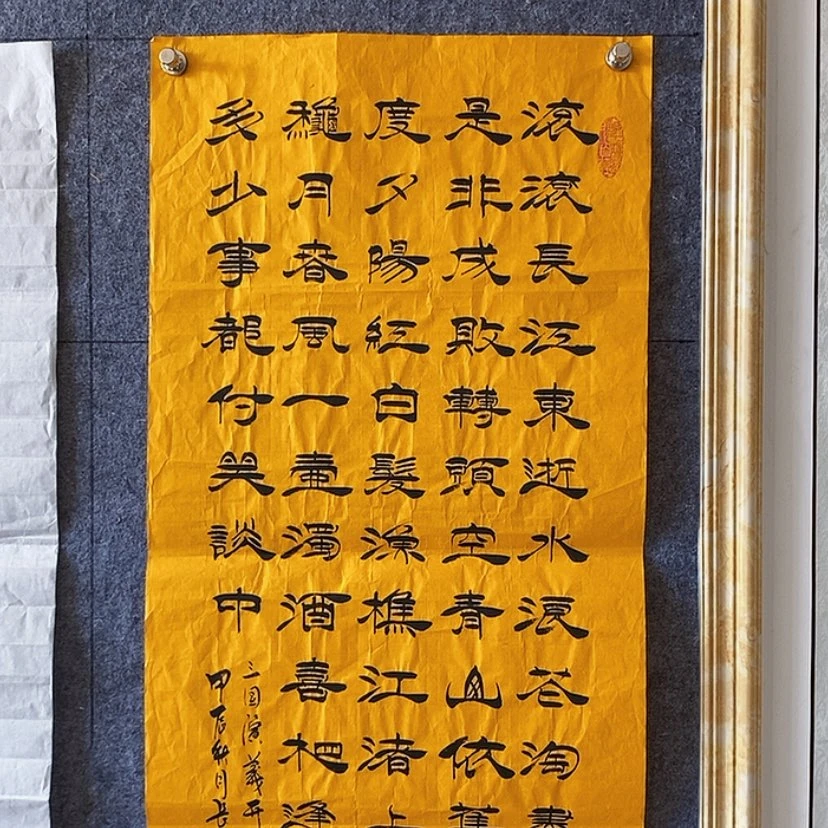 滚滚長江東逝水浪花淘盡
是非成敗轉頭空青山依舊
度夕陽紅白髮漁樵江渚上
龝月春風一壺濁酒喜相逢
多少事都付笑談中
三国演義开
甲辰秋月長